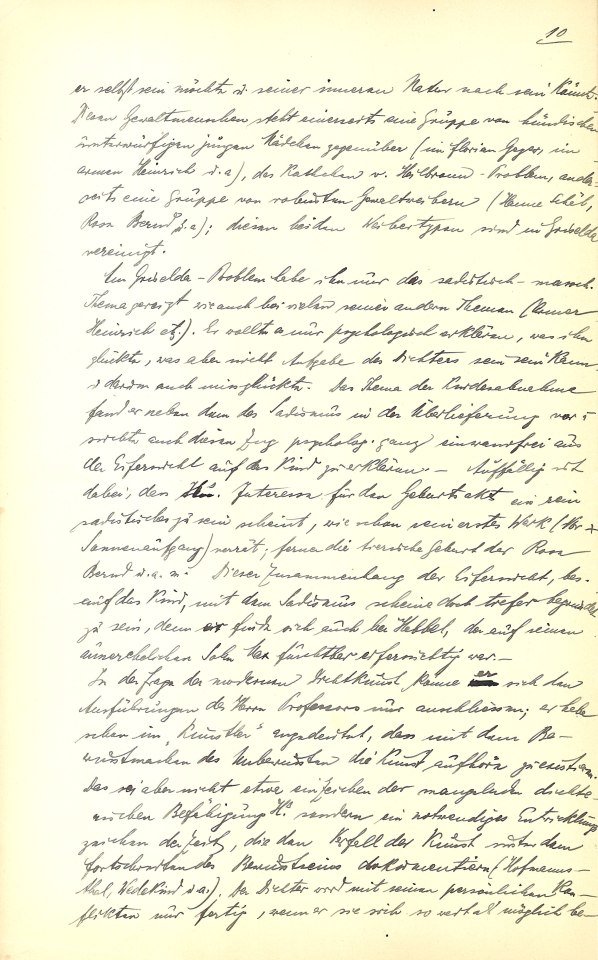 10
er selbst sein möchte u. seiner inneren Natur nach sein könnte.
Diesen Gewaltmenschen steht einerseits eine Gruppe von hündischen
unterwürfigen jungen Mädchen gegenüber (im Florian Geyer, im
armen Heinrich u. a), das Kätchen v. Heilbronn-Problem, ander-
seits eine Gruppe von robusten Gewaltweibern (Henne
Rose Bernd u. a); diesen beiden Weibertypen sind in Griselda
vereinigt.
Am Griselda-Problem habe ihn nur das sadistisch-masoch.
Thema gereizt wie auch bei vielen seiner andern Themen (Armer
Heinrich etc.). Er wollte es nur psychologisch erklären, was ihm
glückte, was aber nicht Aufgabe des Dichters sein kann
u darum auch missglückte. Das Thema der Kindesabnahme
fand er neben dem des Sadismus in der Überlieferung vor u
suchte auch diesen Zug psycholog. ganz einwandfrei aus
der Eifersucht auf das Kind zu erklären. – Auffällig ist
dabei, dass H's. Interesse für den Geburtsakt ein rein
sadistisches zu sein scheint, wie schon sein erstes Werk (Vor
Sonnenaufgang) verrät, ferner die tierische Geburt der Rose
Bernd u. a. m. Dieser Zusammenhang der Eifersucht, bes.
auf das Kind, mit dem Sadismus scheine doch tiefer begründet
zu sein, denn er finde sich auch bei Hebbel, der auf seinen
ausserehelichen Sohn Max furchtbar eifersüchtig war. –
In der Frage der modernen Dichtkunst könne er sich den
Ausführungen des Herrn Professors nur anschliessen; er habe
schon im "Künstler" angedeutet, dass mit dem Be-
wusstmachen des Unbewussten die Kunst aufhöre zu existieren.
Das sei aber nicht etwa ein Zeichen der mangelnden dichte-
rischen Befähigung H's sondern ein notwendiges Entwicklungs
zeichen der Zeit, die den Verfall der Kunst unter dem
fortschreiten des Bewusstseins dokumentiere (Hofmanns-
thal, Wedekind u a.). Der Dichter wird mit seinen persönlichen Kon-
flikten nur fertig, wenn er sie sich so weit als möglich be-